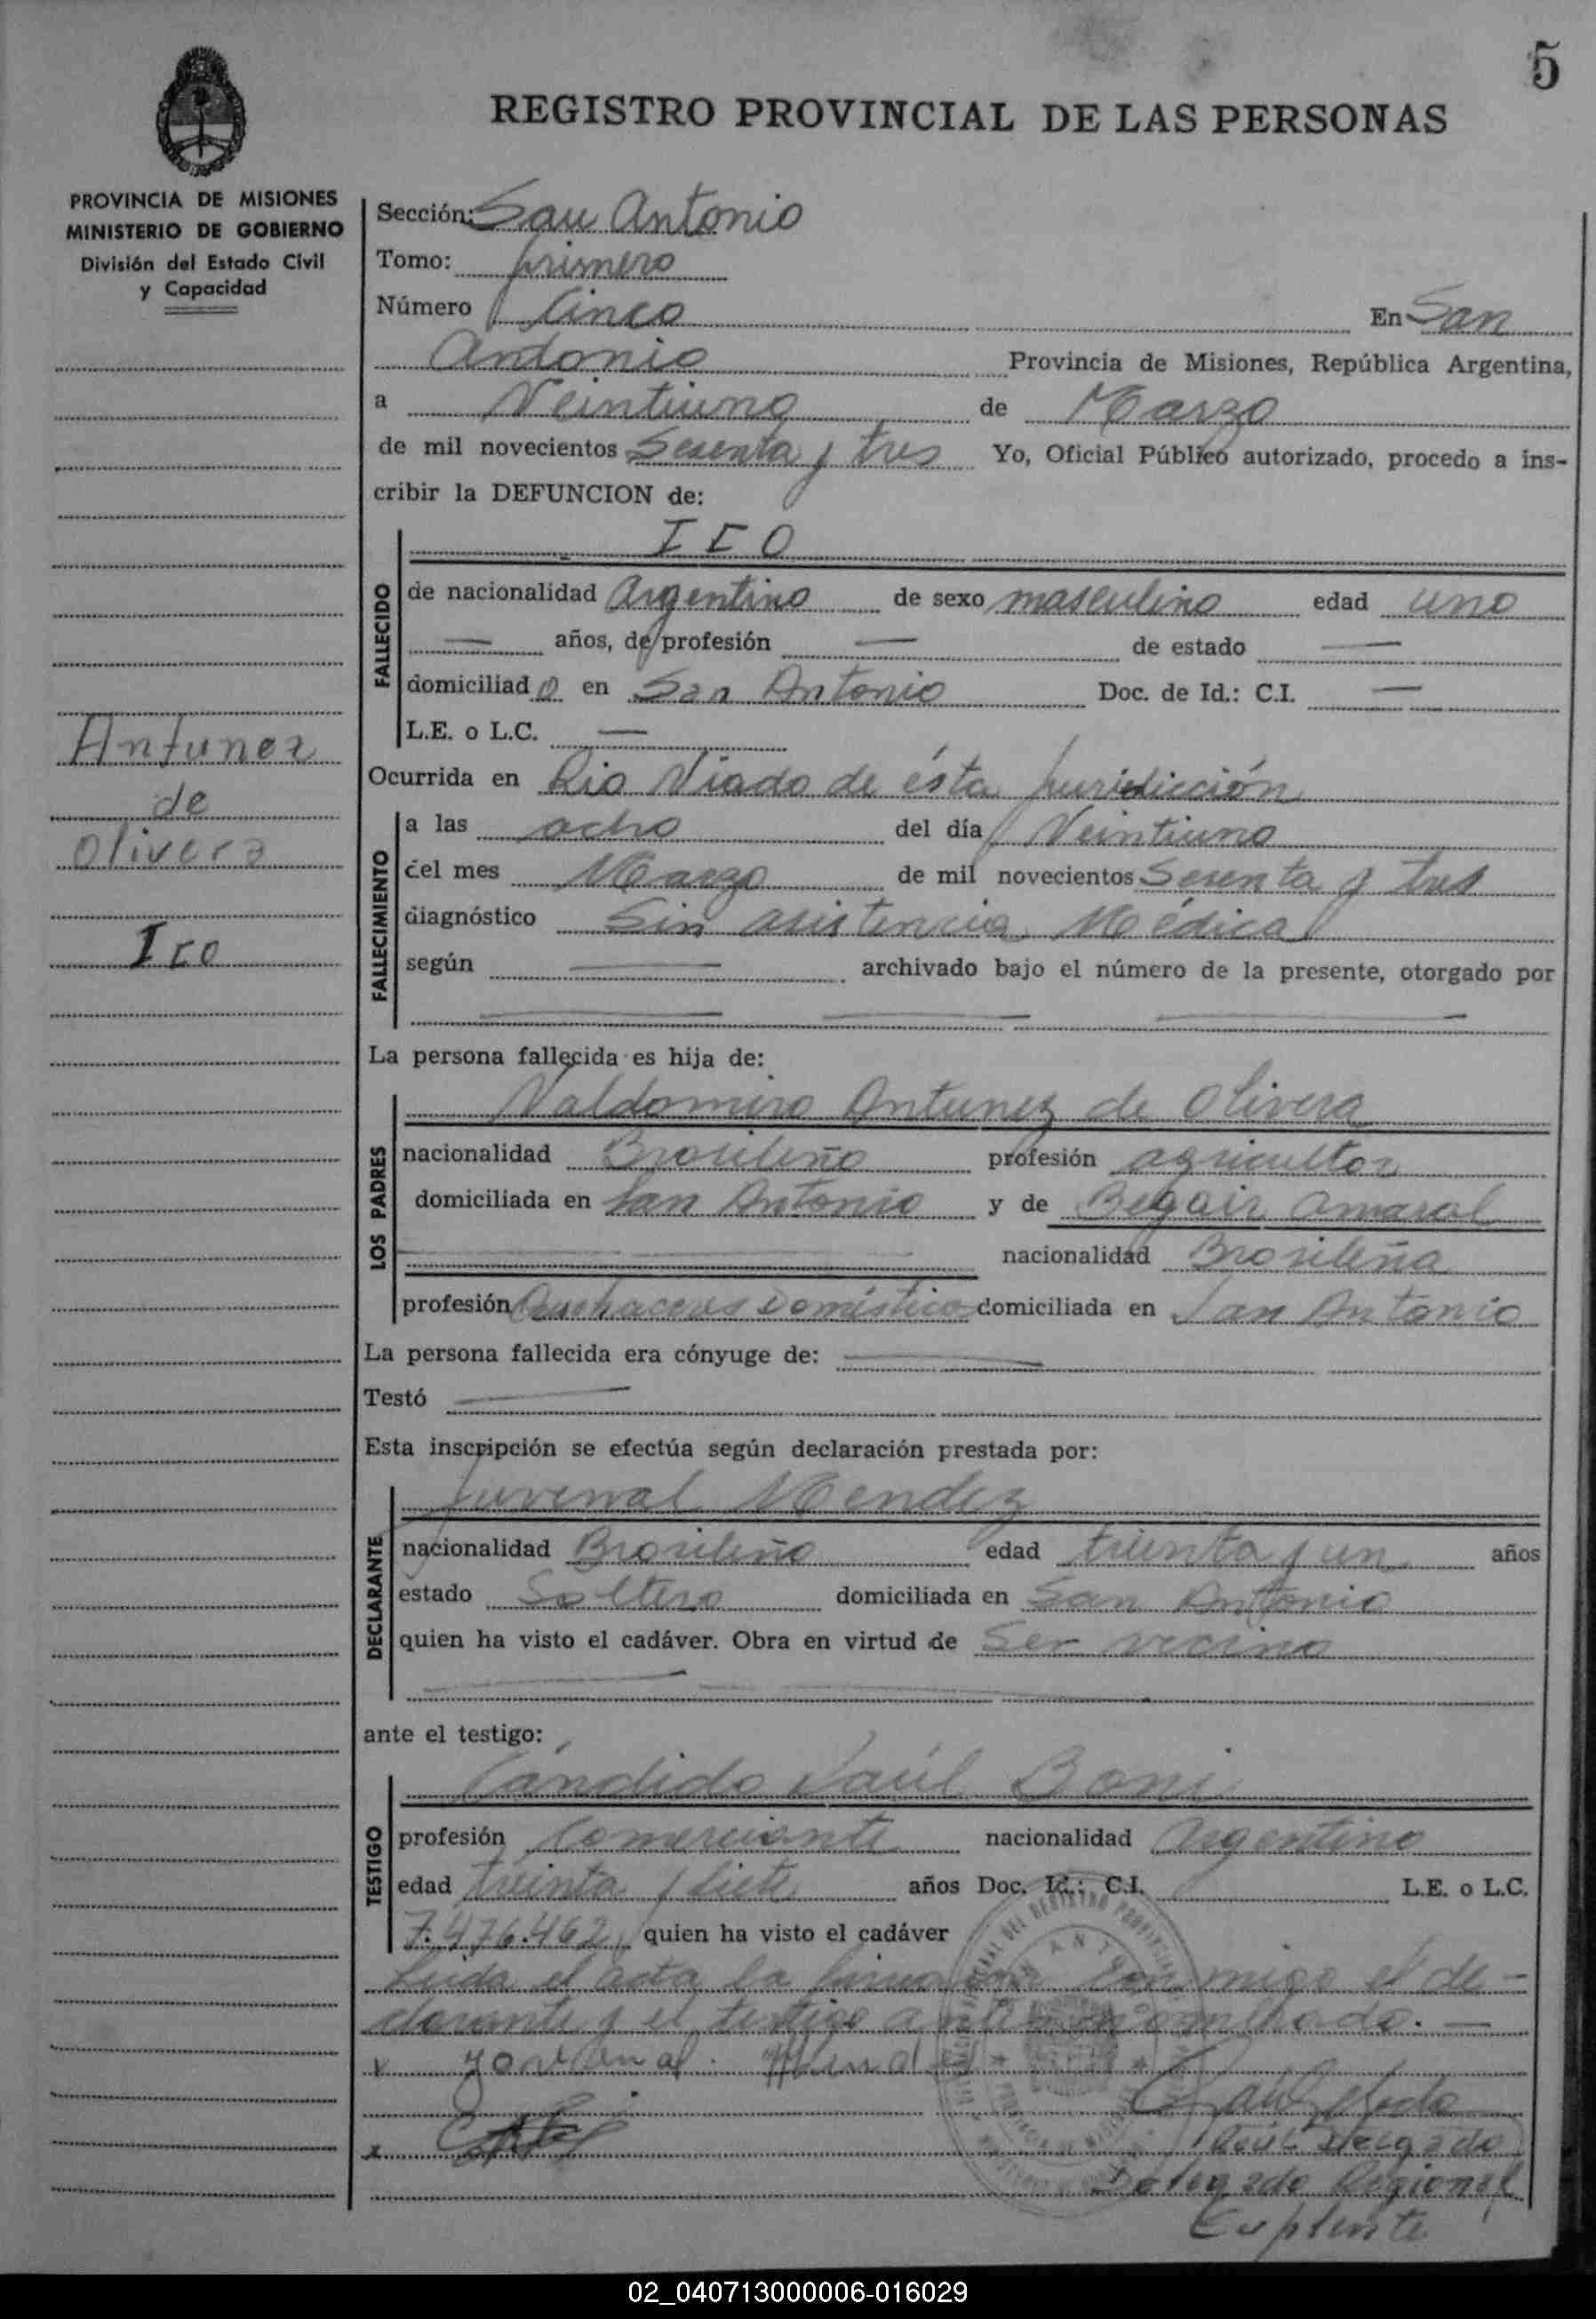 5
REGISTRO PROVINCIAL DE LAS PERSONAS
PROVINCIA DE MISIONES
MINISTERIO DE GOBIERNO
División del Estado Civil
y Capacidad
Antunez
de
Olivera
Ico
Sección: San Antonio
Tomo: primero
Número Cinco En San
Antonio Provincia de Misiones, República Argentina,
a Veintiuno de Marzo
de mil novecientos Sesenta y tres Yo, Oficial Público autorizado, procedo a ins-
cribir la DEFUNCION de:
ICO
FALLECIDO
de nacionalidad Argentino de sexo masculino edad uno
— años, de profesión — de estado —
domiciliado en San Antonio Doc. de Id.: C.I. —
L.E. o L.C. —
Ocurrida en Rio Viado de ésta jurisdicción
FALLECIMIENTO
a las ocho del día Veintiuno
del mes Marzo de mil novecientos Sesenta y tres
diagnóstico Sin asistencia Médica
según — archivado bajo el número de la presente, otorgado por
La persona fallecida es hija de:
LOS PADRES
Valdomiro Antunez de Olivera
nacionalidad Brasileño profesión agricultor
domiciliada en San Antonio y de Begair Amaral
nacionalidad Brasileña
profesión Quehaceres Domésticos domiciliada en San Antonio
La persona fallecida era cónyuge de: —
Testó —
Esta inscripción se efectúa según declaración prestada por:
DECLARANTE
Juvenal Mendez
nacionalidad Brasileño edad treinta y un años
estado Soltero domiciliada en San Antonio
quien ha visto el cadáver. Obra en virtud de Ser vecino
ante el testigo:
TESTIGO
Cándido Saúl Boni
profesión Comerciante nacionalidad Argentino
edad treinta y siete años Doc. Id.: C.I. L.E. o L.C.
7.476.462 quien ha visto el cadáver
Leida el acta la firman con migo el de-
clarante y el testigo
x
x
Delegado Regional
Suplente
02_040713000006-016029